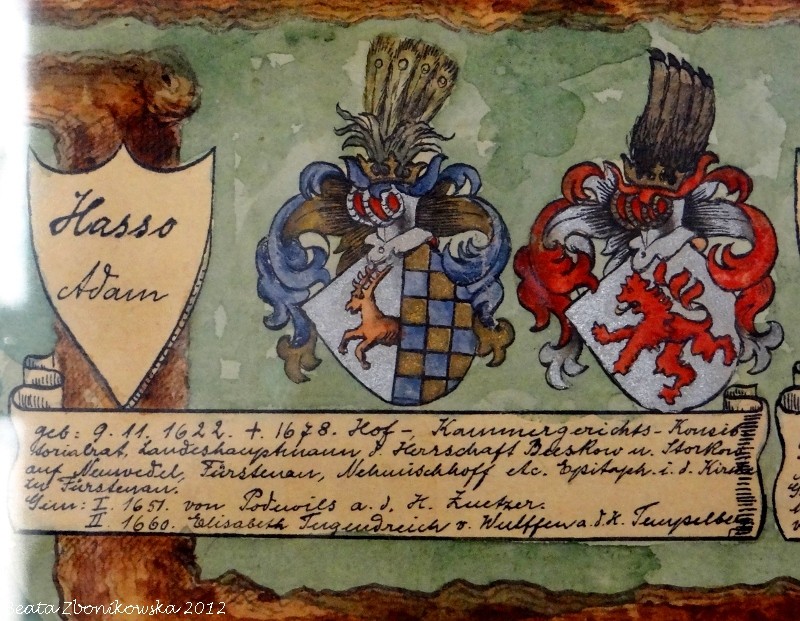 Hasso
Adam
geb: 9. 11. 1622. + 1678. Hof-, Kammergerichts-Konsis
torialrat, Landeshauptmann d. Herrschaft Beeskow u. Storkow
auf Neuwedel, Fürstenau, Nehmischhoff etc. Epitaph. i. d. Kirche
zu Fürstenau.
Gem: I. 1651. von Podewils a. d. H. Zuetzer.
II. 1660. Elisabeth Tugendreich v. Wulffen a. d. H. Tempelberg
eata Zbonikowska 2012